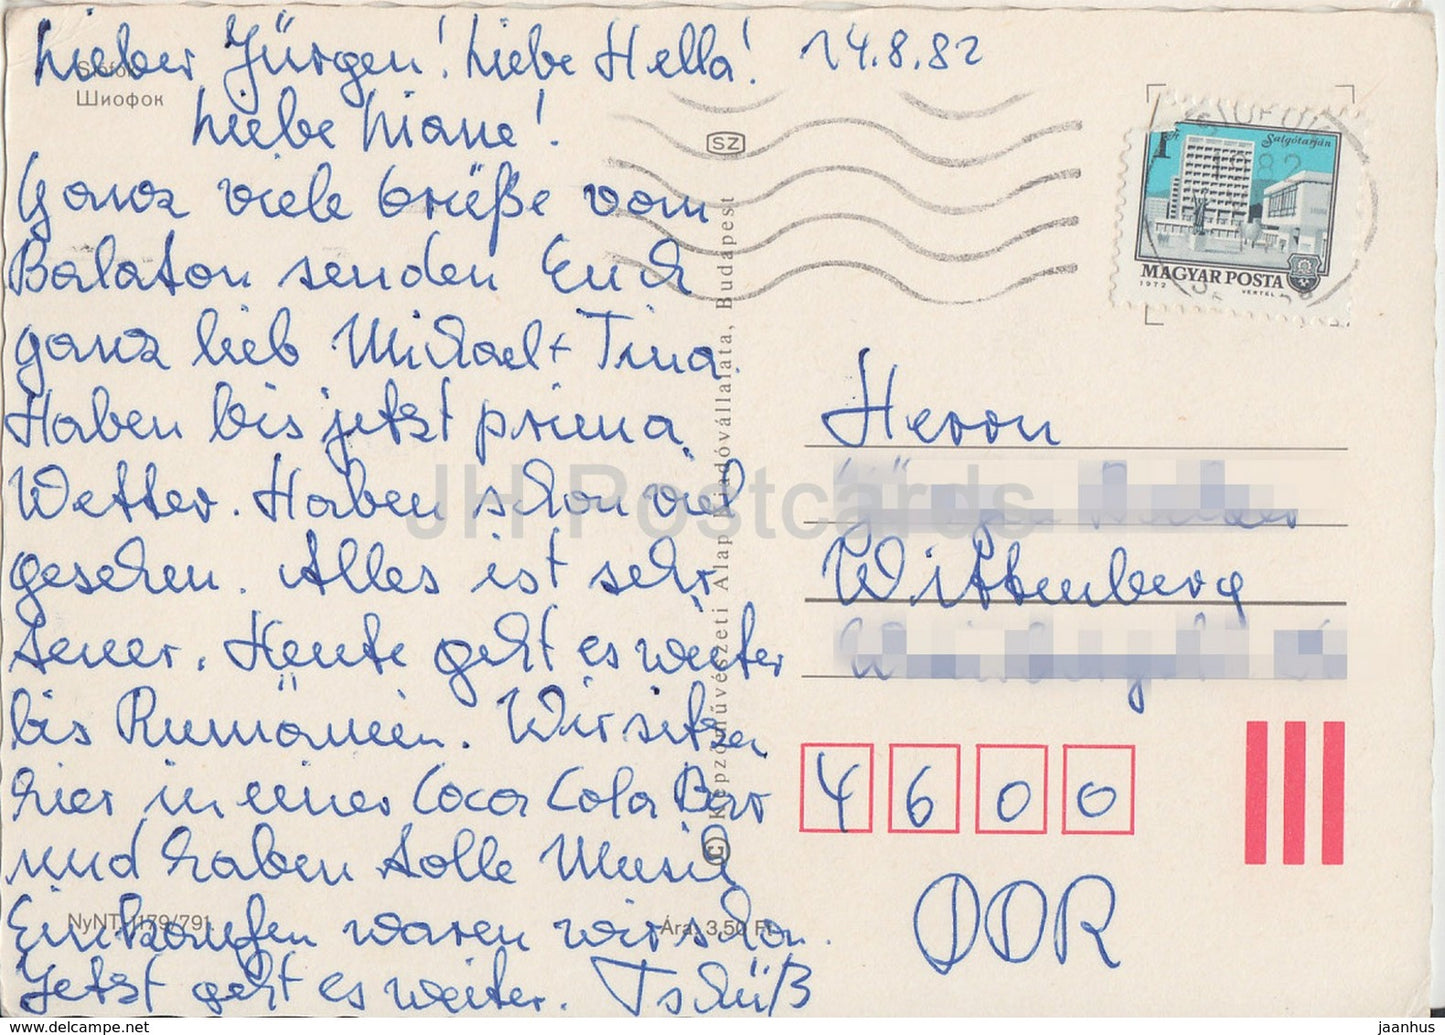 Lieber Jürgen! Liebe Hella! 14.8.82
Siófok
Шиофок
Liebe Diane!
Ganz viele Grüße vom
Balaton senden Euch
ganz lieb Michael + Tina.
Haben bis jetzt prima
Wetter. Haben schon viel
gesehen. Alles ist sehr
teuer. Heute geht es weiter
bis Rumänien. Wir sitzen
hier in einer Coca Cola Bar
und haben tolle Musik
Einkaufen waren wir schon.
Jetzt geht es weiter. Tschüß
NyNT. 1179/791
Ára: 3,50 Ft
SZ
© Képzőművészeti Alap Kiadóvállalata, Budapest
SIÓFOK
1982
Salgótarján
1 F
MAGYAR POSTA
1972
VERTEL
Herrn
Wittenberg
4600
DDR
JH Postcards
www.delcampe.net
jaanhus